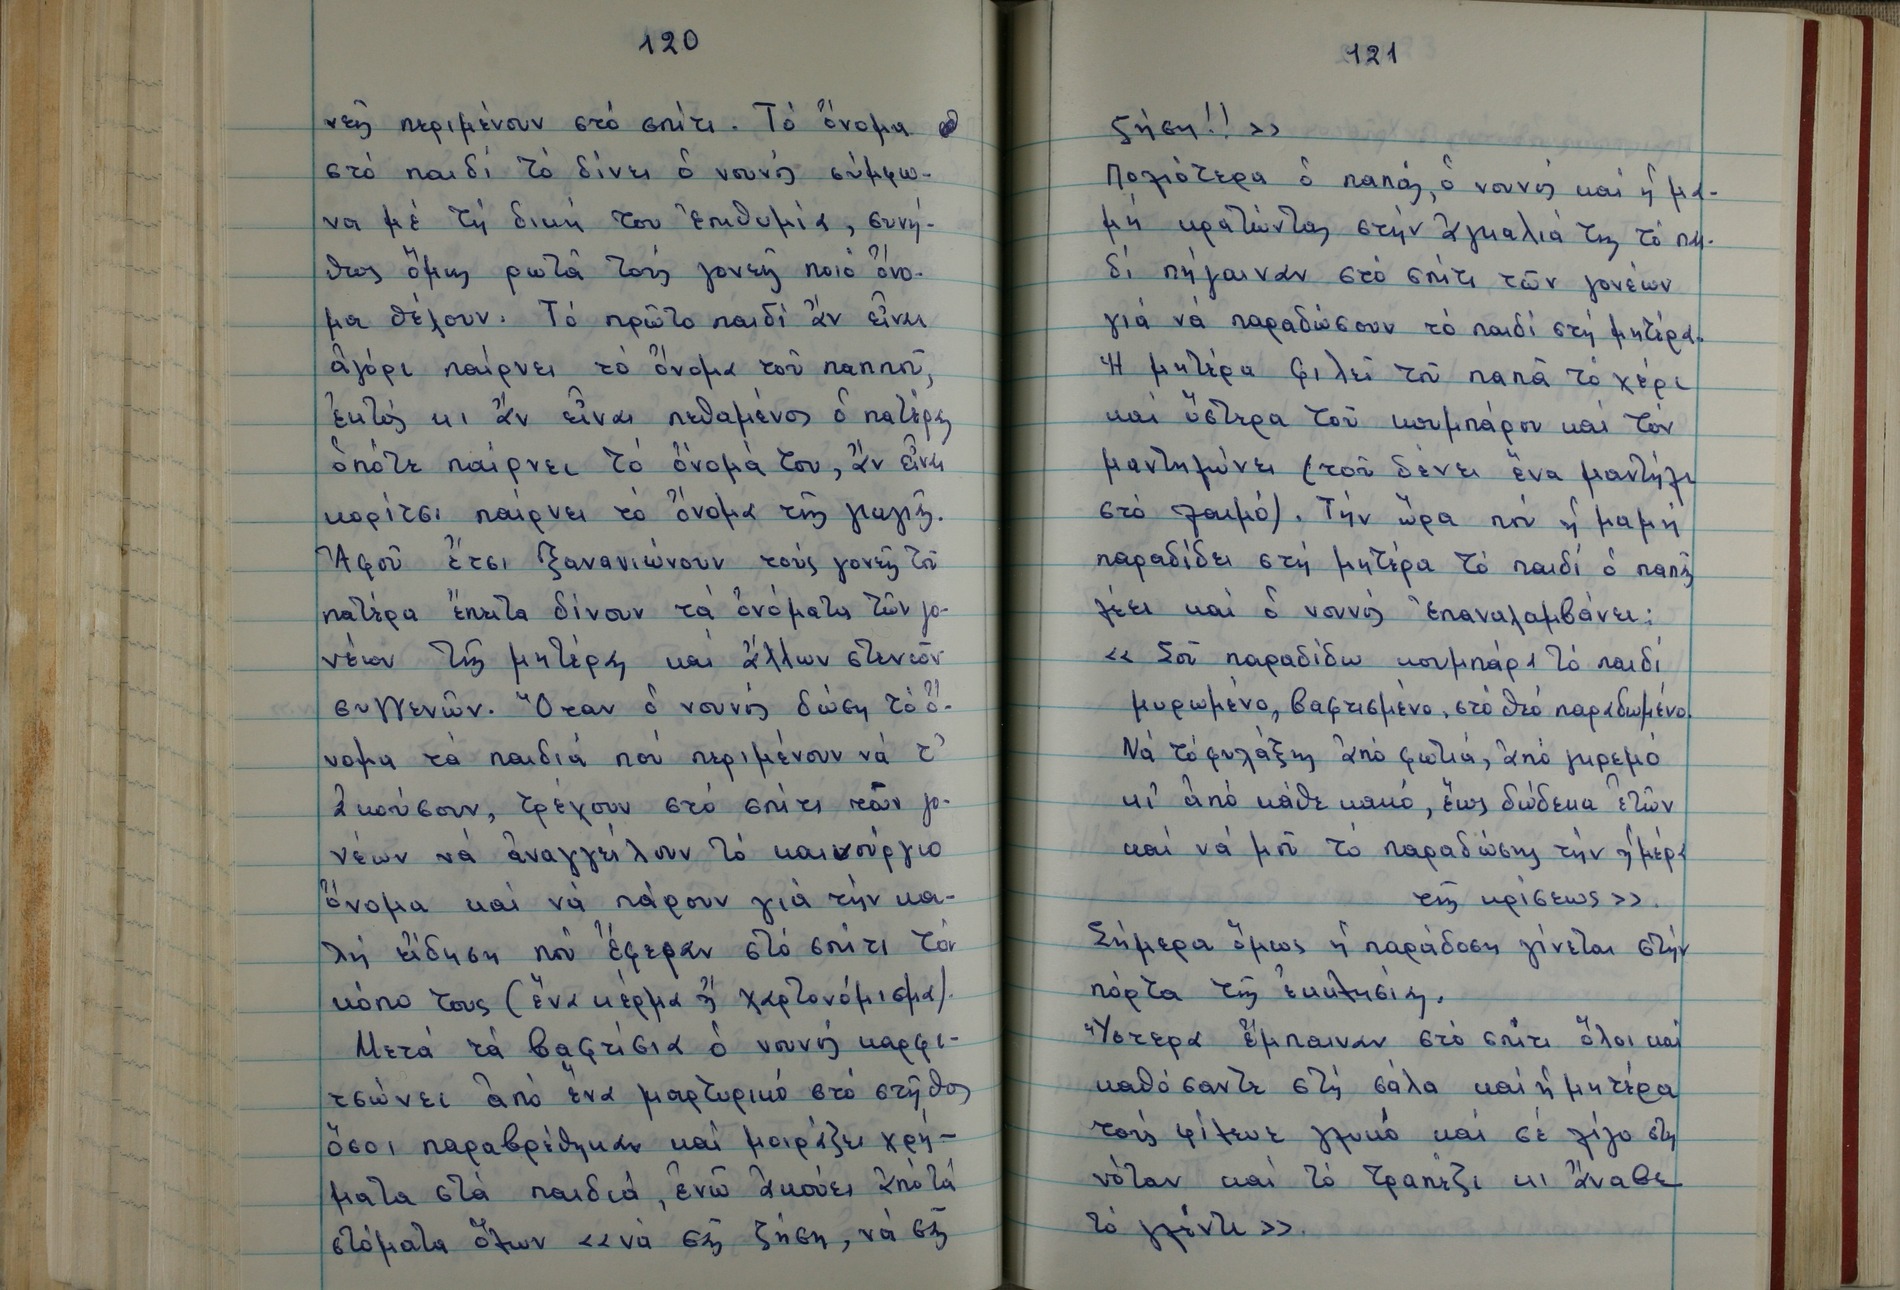 120
νεῖς περιμένουν στό σπίτι. Τό ὄνομα
στό παιδί τό δίνει ὁ νουνός σύμφω-
να μέ τή δική του ἐπιθυμία, συνή-
θως ὅμως ρωτᾶ τούς γονεῖς ποιό ὄνο-
μα θέλουν. Τό πρῶτο παιδί ἄν εἶναι
ἀγόρι παίρνει τό ὄνομα τοῦ παπποῦ,
ἐκτός κι ἄν εἶναι πεθαμένος ὁ πατέρας
ὁπότε παίρνει τό ὄνομά του, ἄν εἶναι
κορίτσι παίρνει τό ὄνομα τῆς γιαγιᾶς.
Ἀφοῦ ἔτσι ξανανιώνουν τούς γονεῖς τοῦ
πατέρα ἔπειτα δίνουν τά ὀνόματα τῶν γο-
νέων τῆς μητέρας καί ἄλλων στενῶν
συγγενῶν. Ὅταν ὁ νουνός δώση τό ὄ-
νομα τά παιδιά πού περιμένουν νά τ'
ἀκούσουν, τρέχουν στό σπίτι τῶν γο-
νέων νά ἀναγγείλουν τό καινούργιο
ὄνομα καί νά πάρουν γιά τήν κα-
λή εἴδηση πού ἔφεραν στό σπίτι τόν
κόπο τους (ἕνα κέρμα ἤ χαρτονόμισμα).
Μετά τά βαφτίσια ὁ νουνός καρφι-
τσώνει ἀπό ἕνα μαρτυρικό στό στῆθος
ὅσοι παραβρέθηκαν καί μοιράζει χρή-
ματα στά παιδιά, ἐνῶ ἀκούει ἀπό τά
στόματα ὅλων <<νά σᾶς ζήση, νά σᾶς
121
ζήση!! >>
Παλιότερα ὁ παπάς, ὁ νουνός καί ἡ μα-
μή κρατώντας στήν ἀγκαλιά της τό παι-
δί πήγαιναν στό σπίτι τῶν γονέων
γιά νά παραδώσουν τό παιδί στή μητέρα.
Ἡ μητέρα φιλεῖ τοῦ παπᾶ τό χέρι
καί ὕστερα τοῦ κουμπάρου καί τόν
μαντηλώνει (τοῦ δένει ἕνα μαντήλι
στό λαιμό). Τήν ὥρα πού ἡ μαμή
παραδίδει στή μητέρα τό παιδί ὁ παπᾶς
λέει καί ὁ νουνός ἐπαναλαμβάνει:
<< Σοῦ παραδίδω κουμπάρα τό παιδί
μυρωμένο, βαφτισμένο, στό θεό παραδωμένο.
Νά τό φυλάξης ἀπό φωτιά, ἀπό γκρεμό
κι' ἀπό κάθε κακό, ἕως δώδεκα ἐτῶν
καί νά μοῦ τό παραδώσης τήν ἡμέρα
τῆς κρίσεως >>.
Σήμερα ὅμως ἡ παράδοση γίνεται στήν
πόρτα τῆς ἐκκλησίας.
Ὕστερα ἔμπαιναν στό σπίτι ὅλοι καί
καθόσαντε στή σάλα καί ἡ μητέρα
τούς φίλευε γλυκό καί σέ λίγο στη
νόταν καί τό τραπέζι κι ἄναβε
τό γλέντι >>.